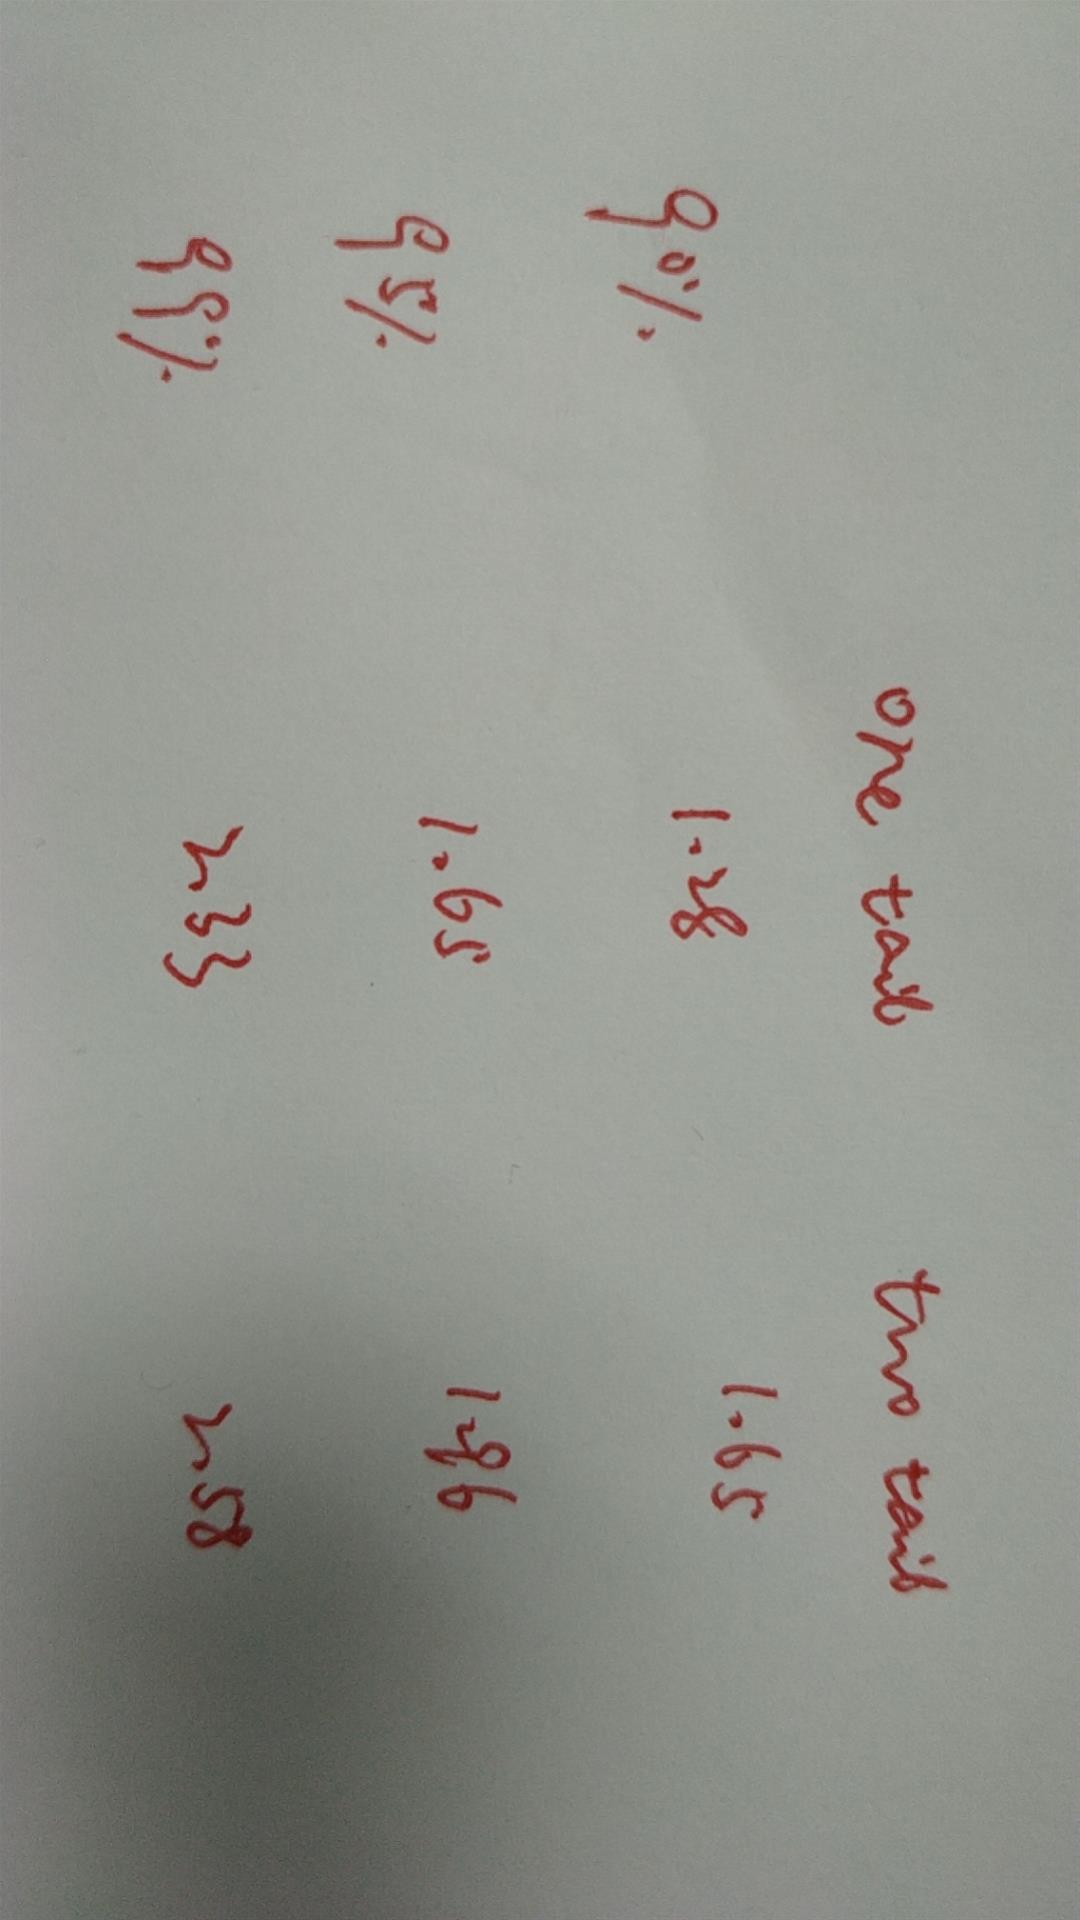 one tail two tail
90% 1.28 1.65
95% 1.65 1.96
99% 2.33 2.58